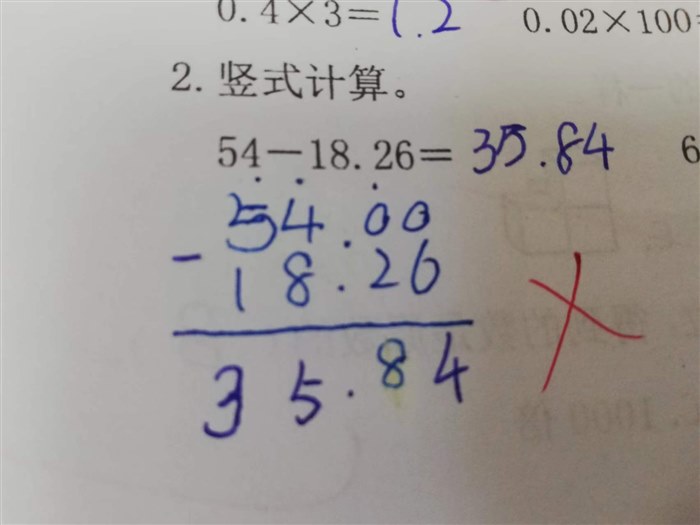 0.4×3=1.2 0.02×100=
2. 竖式计算。
54-18.26=35.84 6
54.00
-18.26
35.84